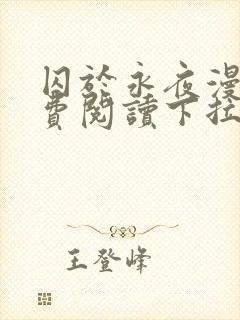 囚於永夜漫
費閱讀下拉
王登峰